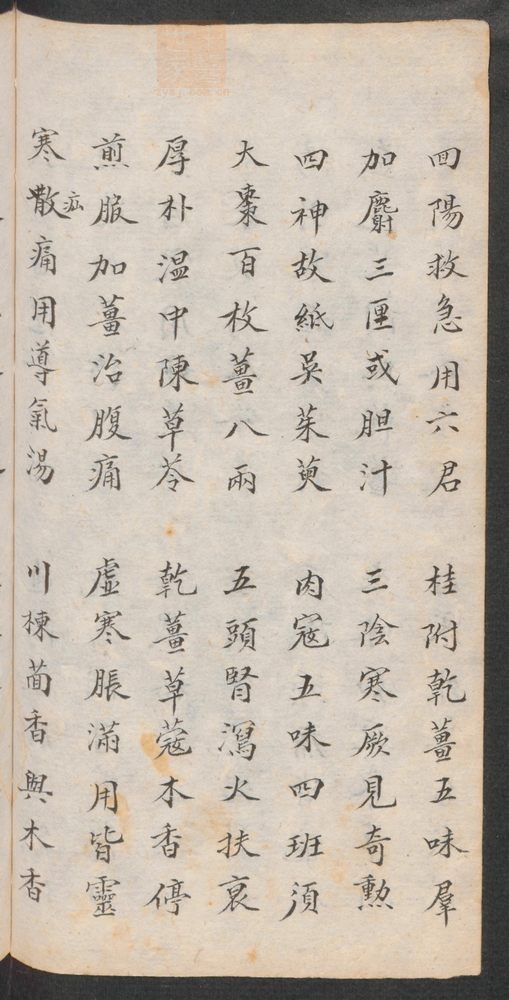 回陽救急用六君　桂附乾薑五味羣
加麝三厘或胆汁　三陰寒厥見奇勲
四神故紙吳茱萸　肉寇五味四班須
大棗百枚薑八兩　五頭腎瀉火扶衰
厚朴温中陳草苓　乾薑草蔻木香停
煎服加薑治腹痛　虚寒脹滿用皆靈
寒疝散痛用導氣湯　川楝茴香與木香